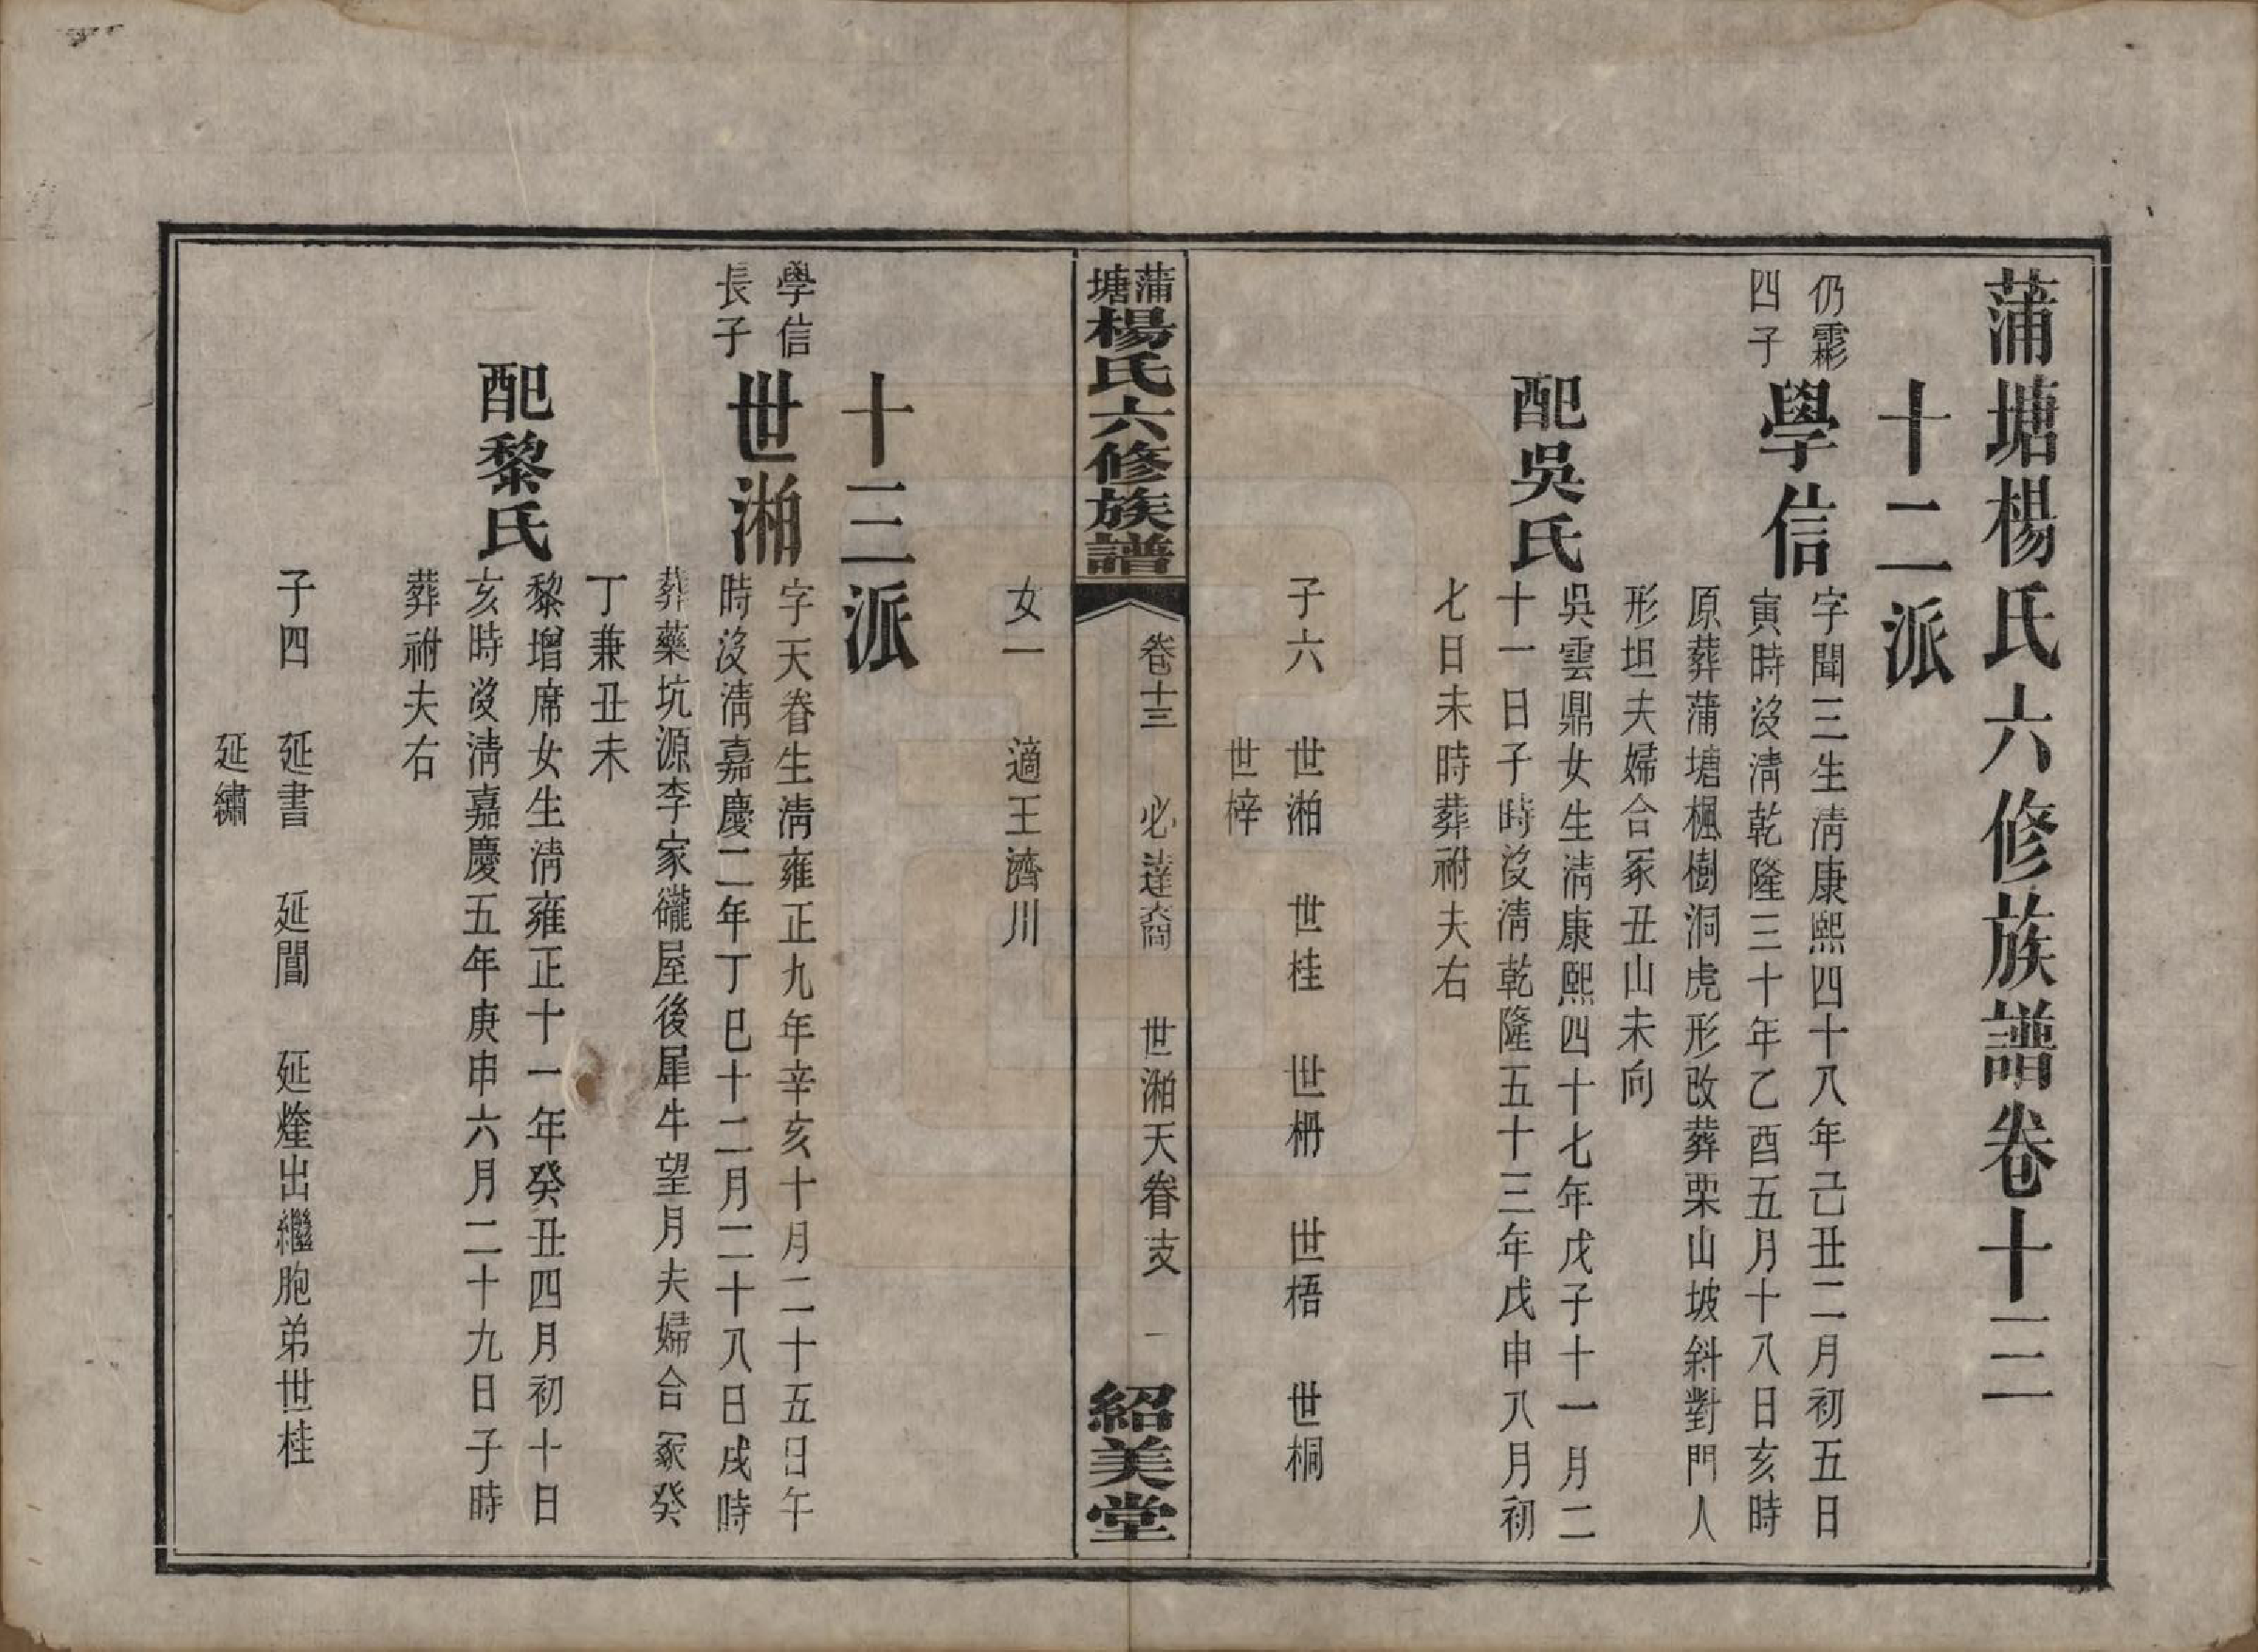 蒲塘楊氏六修族譜卷十三
十二派
仍霦
四子
學信
字聞三生淸康熙四十八年己丑二月初五日
寅時沒淸乾隆三十年乙酉五月十八日亥時
原葬蒲塘楓樹洞虎形改葬栗山坡斜對門人
形坦夫婦合冢丑山未向
配吳氏
吳雲鼎女生淸康熙四十七年戊子十一月二
十一日子時沒淸乾隆五十三年戊申八月初
七日未時葬祔夫右
子六 世湘 世桂 世柵 世梧 世桐
世梓
蒲塘楊氏六修族譜 卷十三 必達裔 世湘天眷支 一 紹美堂
女一 適王濟川
十三派
學信
長子
世湘
字天眷生淸雍正九年辛亥十月二十五日午
時沒淸嘉慶二年丁巳十二月二十八日戌時
葬藥坑源李家屋後犀牛望月夫婦合冢癸
丁兼丑未
配黎氏
黎增席女生淸雍正十一年癸丑四月初十日
亥時沒淸嘉慶五年庚申六月二十九日子時
葬祔夫右
子四 延書 延誾 延烇出繼胞弟世桂
延繡